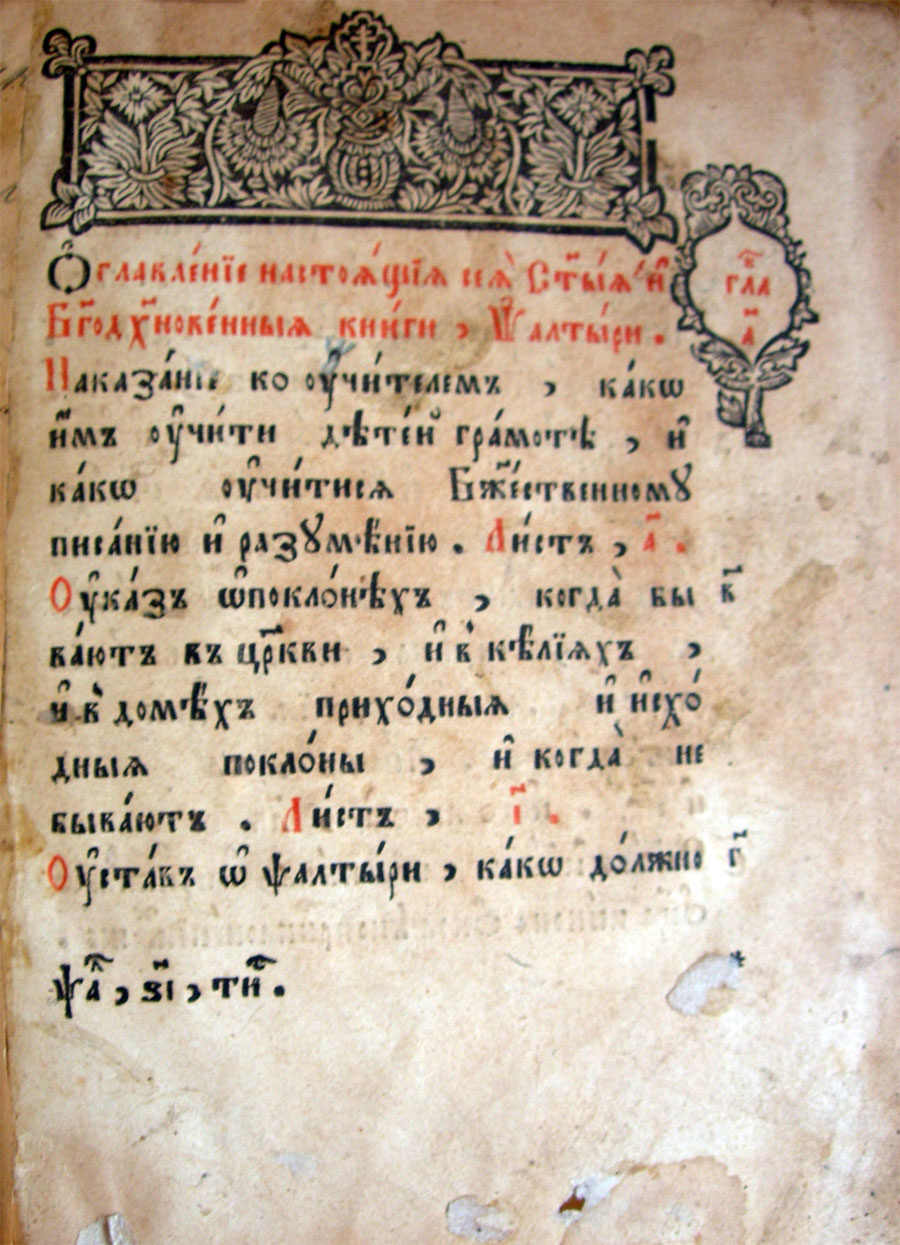 Ѻглавле́нїе настоѧ́щїѧ сеѧ̀ Ст҃ы́ѧ и҆
Бг҃одх҃нове́нныѧ кни́ги , Ѱалты́ри .
гла
а҃
Наказа́нїе ко ᲂу҆чи́телемъ , ка́кѡ
и҆̀мъ ᲂу҆чи́ти дѣте́й гра́мотѣ , и҆
ка́кѡ ᲂу҆чи́тисѧ Бж҃е́ственномꙋ
писа́нїю и҆ разꙋмѣ́нїю . Ли́стъ , а҃ .
Оу҆ка́зъ ѡ҆покло́нѣхъ , когда̀ бы в҃
ва́ютъ въ цр҃кви , и҆ в̾ кѣ́лїѧхъ ,
и҆ в̾ домѣ́хъ прихо́дныѧ и҆ и҆схо́
дныѧ покло́ны , и҆ когда̀ не
быва́ютъ . Ли́стъ , і҃ .
Оу҆ста́въ ѡ҆ ѱалты́ри , ка́кѡ до́лжно г҃
ѱаⷧ҇ , з҃і , тиⷯ .